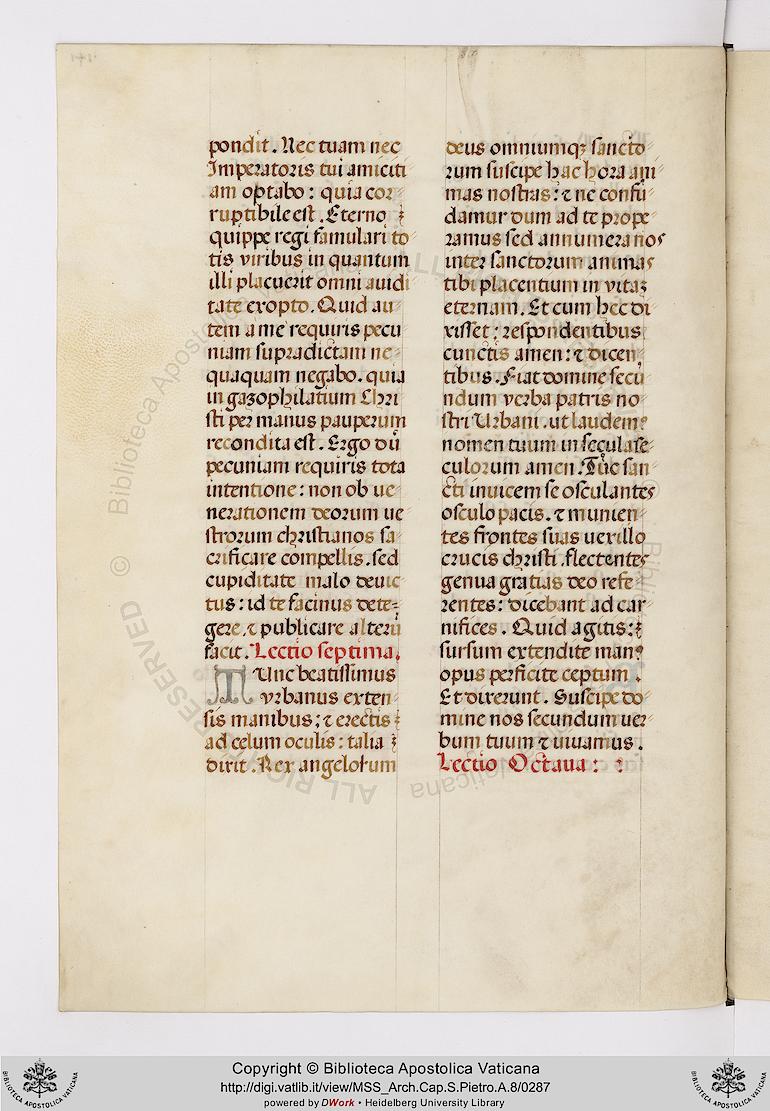 pondit. Nec tuam nec
Imperatoris tui amiciti
am optabo: quia cor
ruptibile est. Eterno
quippe regi famulari to
tis viribus in quantum
illi placuerit omni auidi
tate exopto. Quid au
tem a me requiris pecu
niam supradictam ne
quaquam negabo. quia
in gazophilatium Chri
sti per manus pauperum
recondita est. Ergo dū
pecuniam requiris tota
intentione: non ob ue
nerationem deorum ue
strorum christianos sa
crificare compellis. sed
cupiditate malo deuic
tus: id te facinus dete-
gere. ⁊ publicare alterū
facit. Lectio septima.
Tunc beatissimus
vrbanus exten
sis manibus; ⁊ erectis
ad celum oculis: talia
dixit. Rex angelorum
deus omniumqꝫ sancto
rum suscipe hac hora ani
mas nostras: ⁊ ne confū
damur dum ad te prope
ramus sed annumera nos
inter sanctorum animas
tibi placentium in vitaꝫ
eternam. Et cum hec di
xisset; respondentibus
cunctis amen: ⁊ dicen
tibus. Fiat domine secū
ndum verba patris no
stri Urbani. ut laudem⁹
nomen tuum in secula se
culorum amen. Tūc san
cti inuicem se osculantes
osculo pacis. ⁊ munien
tes frontes suas uexillo
crucis christi. flectentes
genua gratias deo refe
rentes: dicebant ad car
nifices. Quid agitis:
sursum extendite man⁹
opus perficite ceptum.
Et dixerunt. Suscipe do
mine nos secundum uer
bum tuum ⁊ uiuamus.
Lectio Octaua:
© Biblioteca Apostolica Vaticana
ALL RIGHTS RESERVED
Copyright © Biblioteca Apostolica Vaticana
http://digi.vatlib.it/view/MSS_Arch.Cap.S.Pietro.A.8/0287
powered by DWork • Heidelberg University Library
BIBLIOTECA APOSTOLICA VATICANA
BIBLIOTECA APOSTOLICA VATICANA